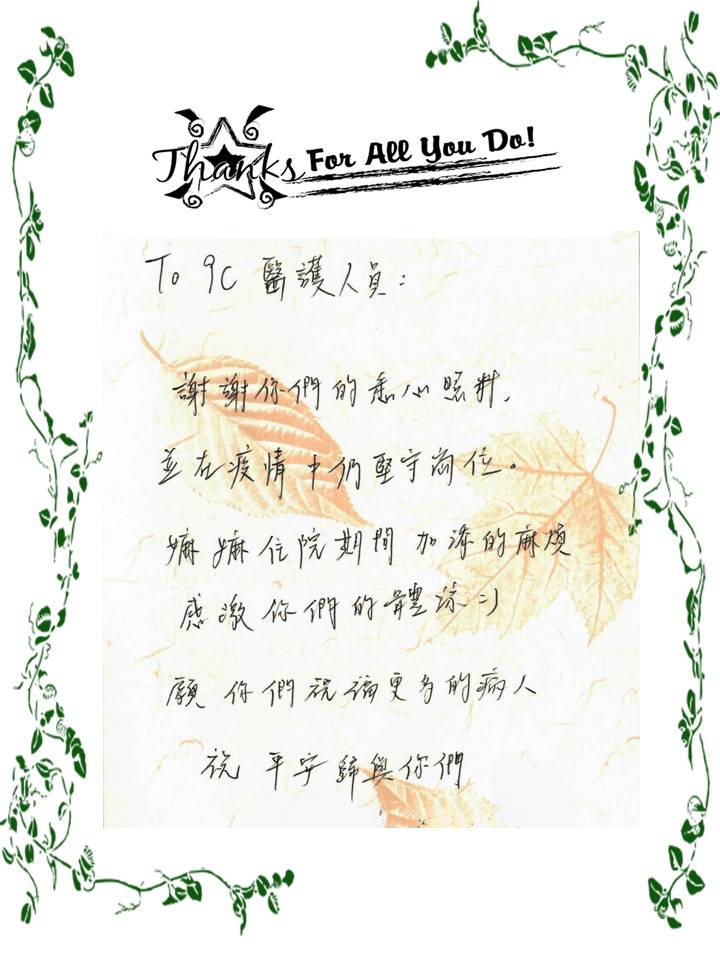 Thanks For All You Do!
To 9C 醫護人員：
謝謝你們的悉心照料，
並在疫情中仍堅守崗位。
嫲嫲住院期間 加添的麻煩
感激你們的體諒 =)
願 你們祝福更多的病人
祝 平安歸與你們